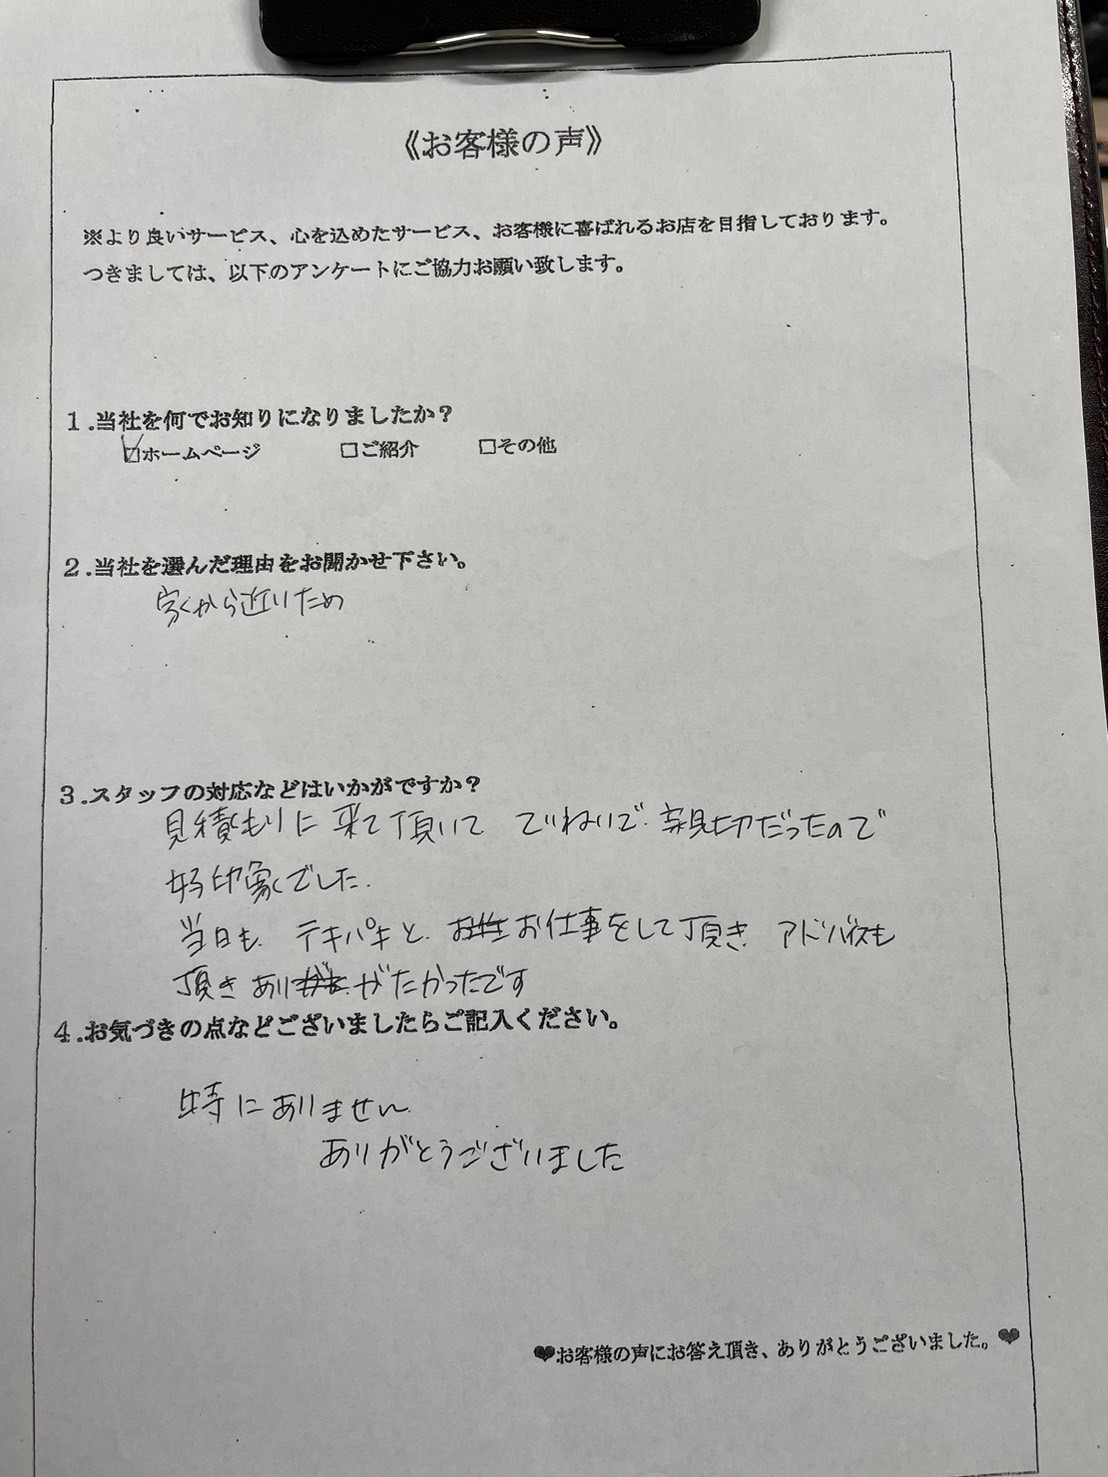 《お客様の声》
※より良いサービス、心を込めたサービス、お客様に喜ばれるお店を目指しております。
つきましては、以下のアンケートにご協力お願い致します。
1.当社を何でお知りになりましたか？
☑ホームページ □ご紹介 □その他
2.当社を選んだ理由をお聞かせ下さい。
家から近いため
3.スタッフの対応などはいかがですか？
見積もりに来て頂いて ていねいで親切だったので
好印象でした。
当日も テキパキと お仕事をして頂き アドバイスも
頂き ありがたかったです
4.お気づきの点などございましたらご記入ください。
特にありません
ありがとうございました
♥お客様の声にお答え頂き、ありがとうございました。♥